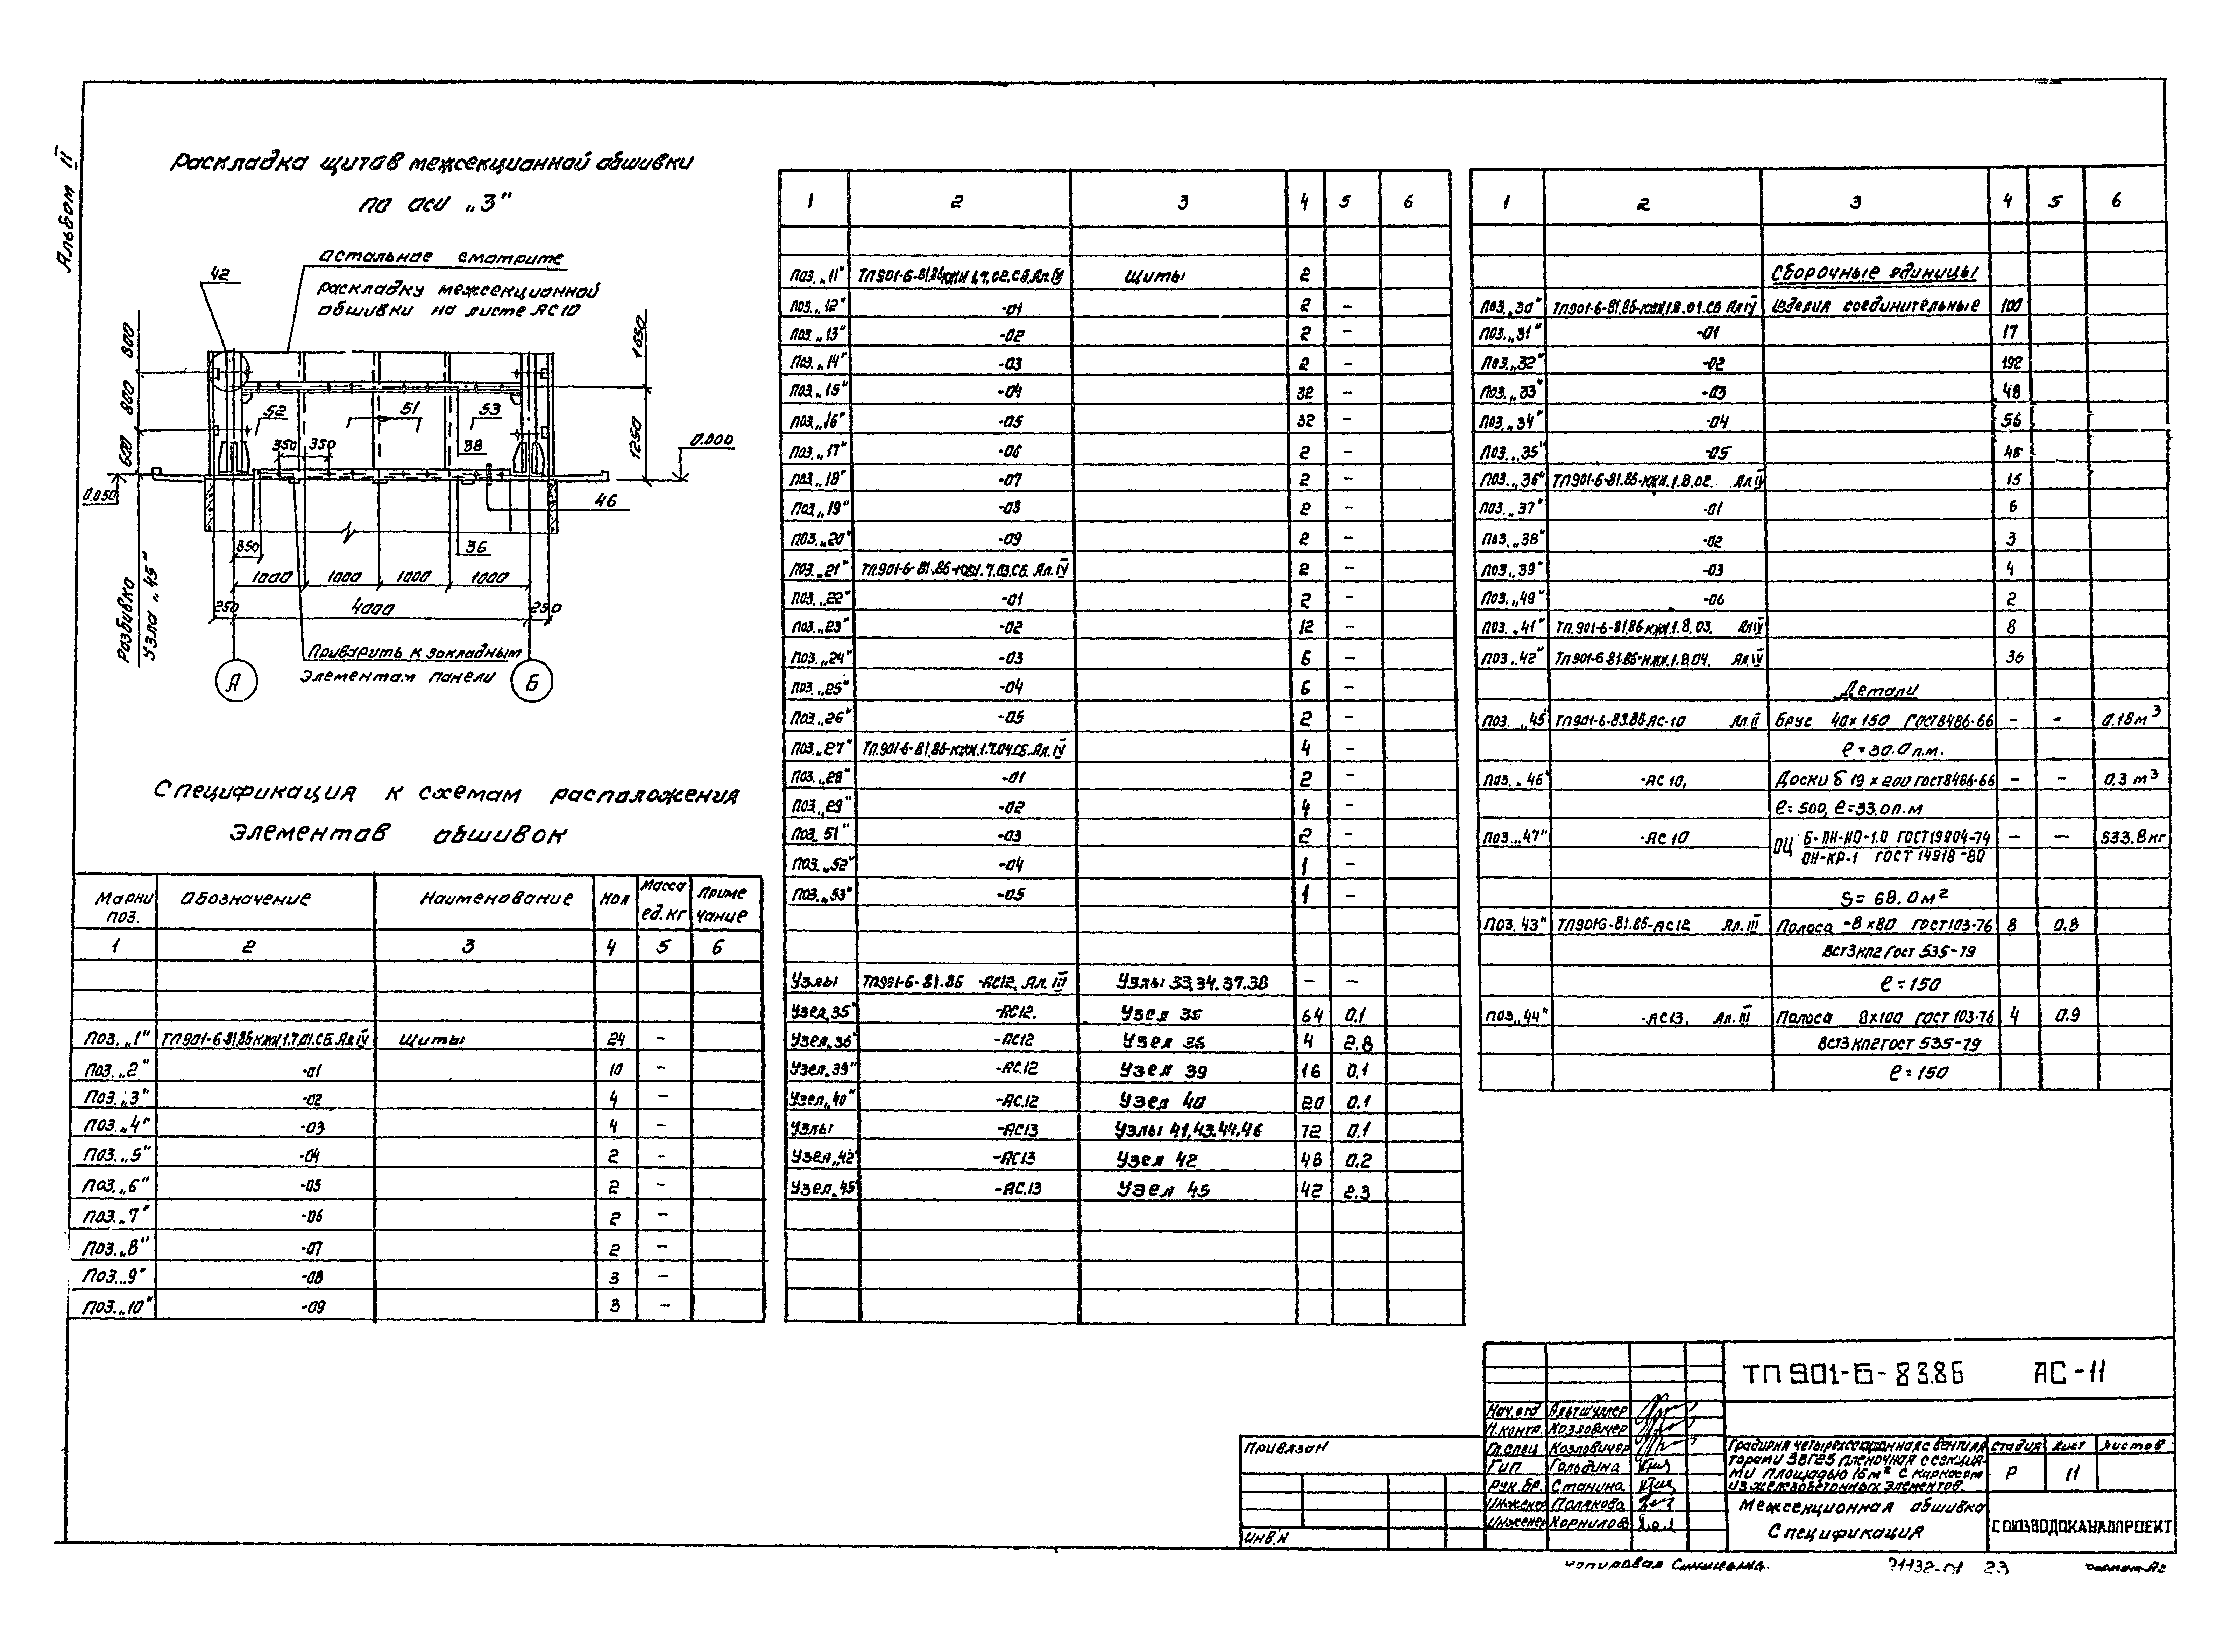 Альбом II
Раскладка щитов межсекционной обшивки
по оси „3"
остальное смотрите
раскладку межсекционной
обшивки на листе АС10
42
800
800
600
1650
1250
52
51
53
350
350
38
0.000
0.050
46
350
36
1000
1000
1000
1000
250
4000
250
Разбивка
узла „45"
Приварить к закладным
элементам панели
А
Б
Спецификация к схемам расположения
элементов обшивок
Марки поз. | Обозначение | Наименование | Кол | Масса ед. кг | Приме чание
1 | 2 | 3 | 4 | 5 | 6
Поз. „1" | ТП901-6-81.86КЖИ.1.7.01.СБ.Ал IV | Щиты | 24 | –
Поз. „2" | -01 | 10 | –
Поз. „3" | -02 | 4 | –
Поз. „4" | -03 | 4 | –
Поз. „5" | -04 | 2 | –
Поз. „6" | -05 | 2 | –
Поз. „7" | -06 | 2 | –
Поз. „8" | -07 | 2 | –
Поз. „9" | -08 | 3 | –
Поз. „10" | -09 | 3 | –
1 | 2 | 3 | 4 | 5 | 6
Поз. „11" | ТП901-6-81.86КЖИ 1.7.02.СБ.Ал. IV | Щиты | 2
Поз. „12" | -01 | 2 | –
Поз. „13" | -02 | 2 | –
Поз. „14" | -03 | 2 | –
Поз. „15" | -04 | 32 | –
Поз. „16" | -05 | 32 | –
Поз. „17" | -06 | 2 | –
Поз. „18" | -07 | 2 | –
Поз. „19" | -08 | 2 | –
Поз. „20" | -09 | 2 | –
Поз. „21" | ТП.901-6-81.86-КЖИ.7.03.СБ. Ал. IV | 2 | –
Поз. „22" | -01 | 2 | –
Поз. „23" | -02 | 12 | –
Поз. „24" | -03 | 6 | –
Поз. „25" | -04 | 6 | –
Поз. „26" | -05 | 2 | –
Поз. „27" | ТП.901-6-81.86-КЖИ.1.7.04.СБ.Ал. IV | 4 | –
Поз. „28" | -01 | 2 | –
Поз. „29" | -02 | 4 | –
Поз. 51" | -03 | 2 | –
Поз. „52" | -04 | 1 | –
Поз. „53" | -05 | 1 | –
Узлы | ТП901-6-81.86 -АС12, Ал. III | Узлы 33,34,37,38 | – | –
Узел „35" | -АС12. | Узел 35 | 64 | 0.1
Узел „36" | -АС12 | Узел 36 | 4 | 2.8
Узел „39" | -АС.12 | Узел 39 | 16 | 0.1
Узел „40" | -АС.12 | Узел 40 | 20 | 0.1
Узлы | -АС13 | Узлы 41,43,44,46 | 72 | 0.1
Узел „42" | -АС13 | Узел 42 | 48 | 0.2
Узел „45" | -АС.13 | Узел 45 | 42 | 2.3
1 | 2 | 3 | 4 | 5 | 6
Сборочные единицы
Поз. „30" | ТП901-6-81.86-КЖИ.1.8.01.СБ Ал IV | Изделия соединительные | 100
Поз. „31" | -01 | 17
Поз. „32" | -02 | 192
Поз. „33" | -03 | 48
Поз. „34" | -04 | 56
Поз. „35" | -05 | 48
Поз. „36" | ТП901-6-81.86-КЖИ.1.8.02. Ал IV | 15
Поз. „37" | -01 | 6
Поз. „38" | -02 | 3
Поз. „39" | -03 | 4
Поз. „49" | -06 | 2
Поз. „41" | ТП.901-6-81.86-КЖИ.1.8.03. Ал IV | 8
Поз. „42" | ТП901-6-81.86-КЖИ.1.8.04. Ал IV | 36
Детали
Поз. „45" | ТП901-6-83.86 АС-10 Ал. II | Брус 40х150 ГОСТ8486-66 | – | – | 0.18 м³
ℓ=30.0 п.м.
Поз. „46" | -АС 10, | Доски δ 19х200 ГОСТ8486-66 | – | – | 0.3 м³
ℓ=500, ℓ=33.0 п.м
Поз. „47" | -АС 10 | ОЦ Б-ПН-НО-1.0 ГОСТ19904-74 | – | – | 533.8 кг
ОН-КР-1 ГОСТ 14918-80
S=68.0 м²
Поз. 43" | ТП901-6-81.86-АС12 Ал. III | Полоса -8х80 ГОСТ103-76 | 8 | 0.8
ВСт3кп2 ГОСТ 535-79
ℓ=150
Поз. „44" | -АС13, Ал. III | Полоса 8х100 ГОСТ 103-76 | 4 | 0.9
ВСт3кп2 ГОСТ 535-79
ℓ=150
Привязан
Инв.N
ТП 901-6-83.86 АС-11
Нач. отд Альтшуллер
Н.контр. Козловичер
Гл.спец Козловичер
ГИП Гольдина
Рук. бр. Станина
Инженер Полякова
Инженер Корнилов
Градирня четырехсекционная с вентиля
торами 3ВГ25 пленочная с секция-
ми площадью 16м² с каркасом
из железобетонных элементов.
Стадия | Лист | Листов
Р | 11
Межсекционная обшивка
Спецификация
СОЮЗВОДОКАНАЛПРОЕКТ
Копировал 21132-01 23 Формат А2